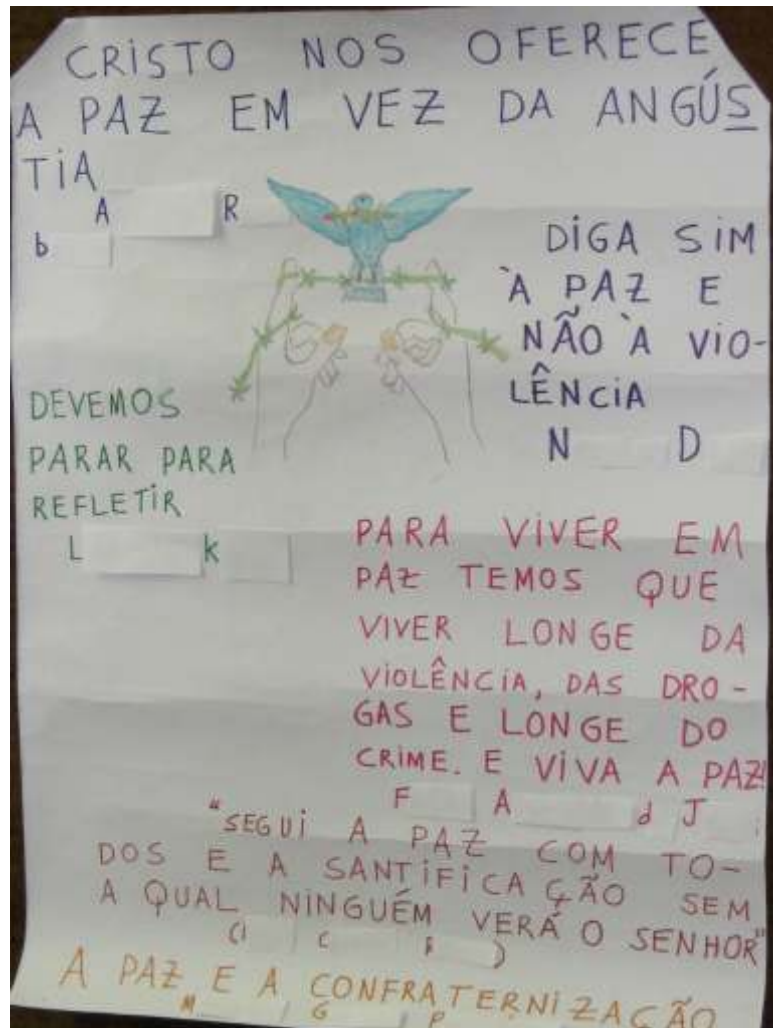 CRISTO NOS OFERECE
A PAZ EM VEZ DA ANGÚS
TIA
A R
b
DIGA SIM
À PAZ E
NÃO À VIO-
LÊNCIA
N D
DEVEMOS
PARAR PARA
REFLETIR
L K
PARA VIVER EM
PAZ TEMOS QUE
VIVER LONGE DA
VIOLÊNCIA, DAS DRO-
GAS E LONGE DO
CRIME. E VIVA A PAZ!
F A d J
"SEGUI A PAZ COM TO-
DOS E A SANTIFICAÇÃO SEM
A QUAL NINGUÉM VERÁ O SENHOR"
A PAZ E A CONFRATERNIZAÇÃO
M G P